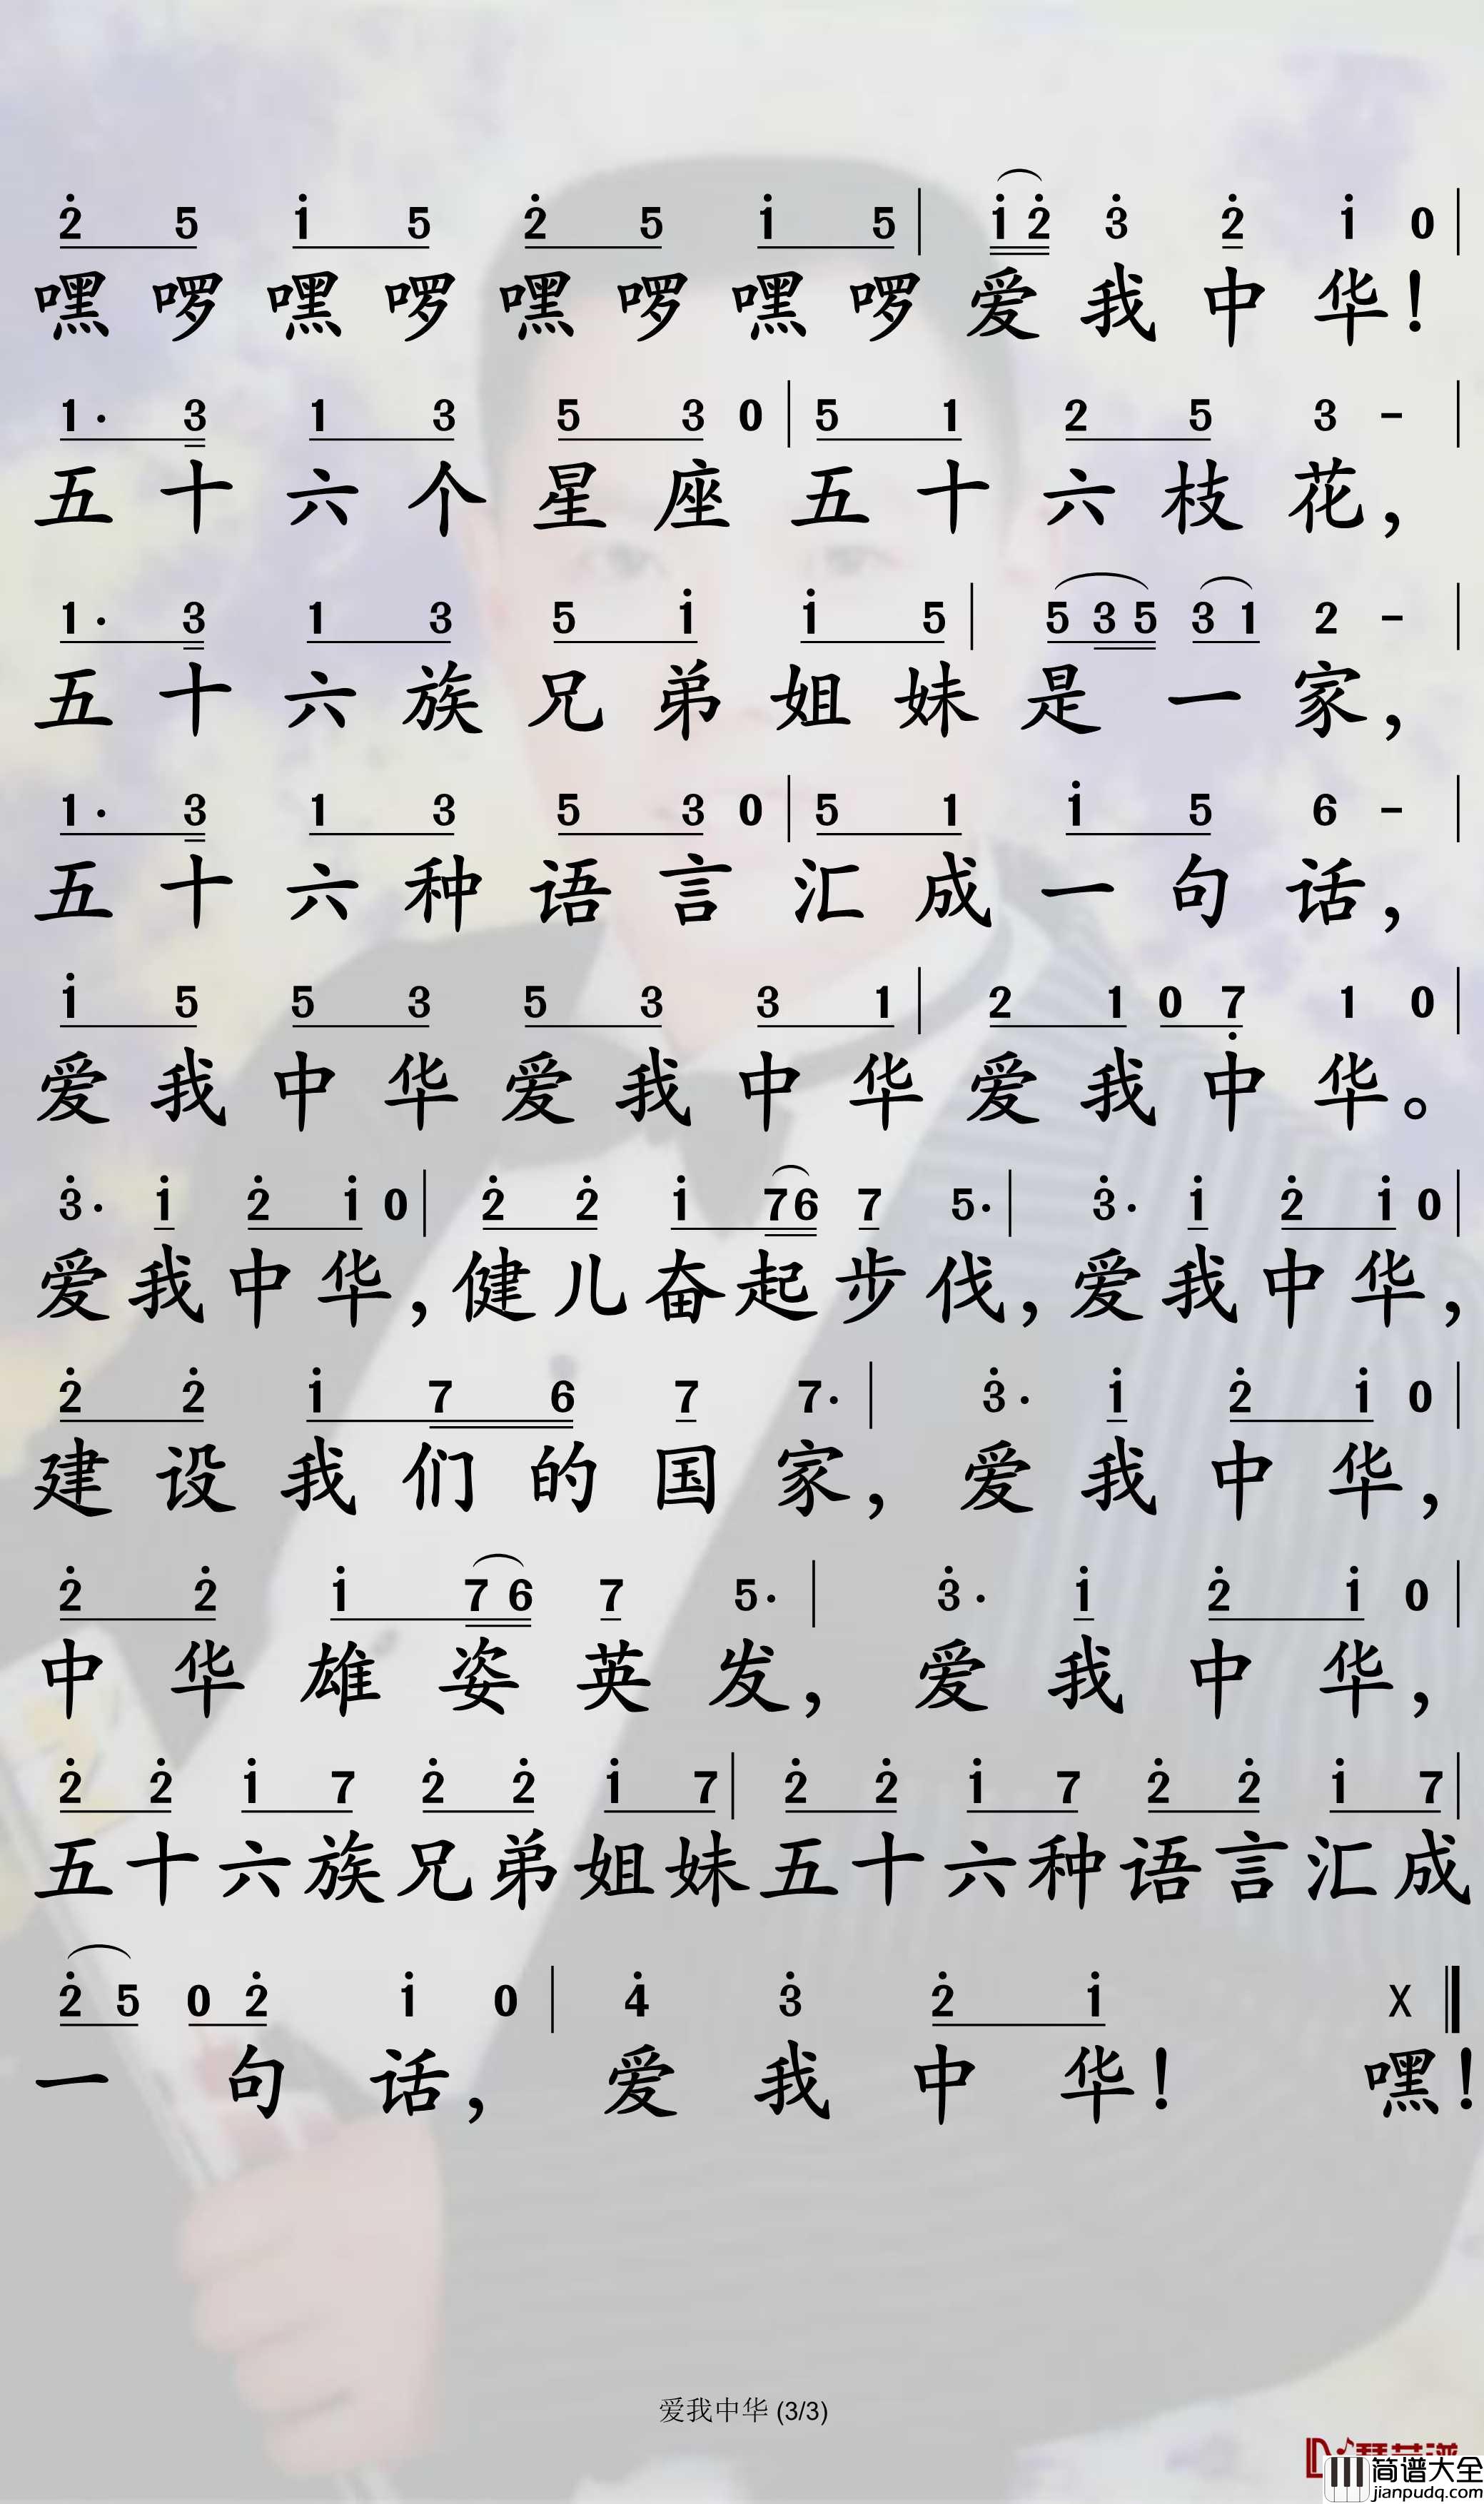 2 5 1 5 2 5 1 5 | 1 2 3 2 1 0 |
嘿啰嘿啰嘿啰嘿啰爱我中华！
1· 3 1 3 5 3 0 | 5 1 2 5 3 - |
五十六个星座五十六枝花，
1· 3 1 3 5 1 1 5 | 5 3 5 3 1 2 - |
五十六族兄弟姐妹是一家，
1· 3 1 3 5 3 0 | 5 1 1 5 6 - |
五十六种语言汇成一句话，
1 5 5 3 5 3 3 1 | 2 1 0 7 1 0 |
爱我中华爱我中华爱我中华。
3· 1 2 1 0 | 2 2 1 7 6 7 5· | 3· 1 2 1 0 |
爱我中华，健儿奋起步伐，爱我中华，
2 2 1 7 6 7 7· | 3· 1 2 1 0 |
建设我们的国家，爱我中华，
2 2 1 7 6 7 5· | 3· 1 2 1 0 |
中华雄姿英发，爱我中华，
2 2 1 7 2 2 1 7 | 2 2 1 7 2 2 1 7 |
五十六族兄弟姐妹五十六种语言汇成
2 5 0 2 1 0 | 4 3 2 1 X ‖
一句话，爱我中华！嘿！
爱我中华 (3/3)
简谱大全
jianpudq.com